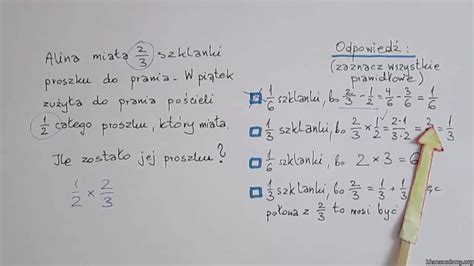 Alina miała 2/3 szklanki
proszku do prania. W piątek
zużyła do prania pościeli
1/2 całego proszku, który miała.
Ile zostało jej proszku?
1/2 × 2/3
Odpowiedź:
(zaznacz wszystkie
prawidłowe)
1/6 szklanki, bo 2/3 - 1/2 = 4/6 - 3/6 = 1/6
1/3 szklanki, bo 2/3 × 1/2 = 2·1/3·2 = 2/ = 1/3
1/6 szklanki, bo 2 × 3 = 6
1/3 szklanki, bo 2/3 = 1/3 + 1/3, ięc
połowa z 2/3 to musi być